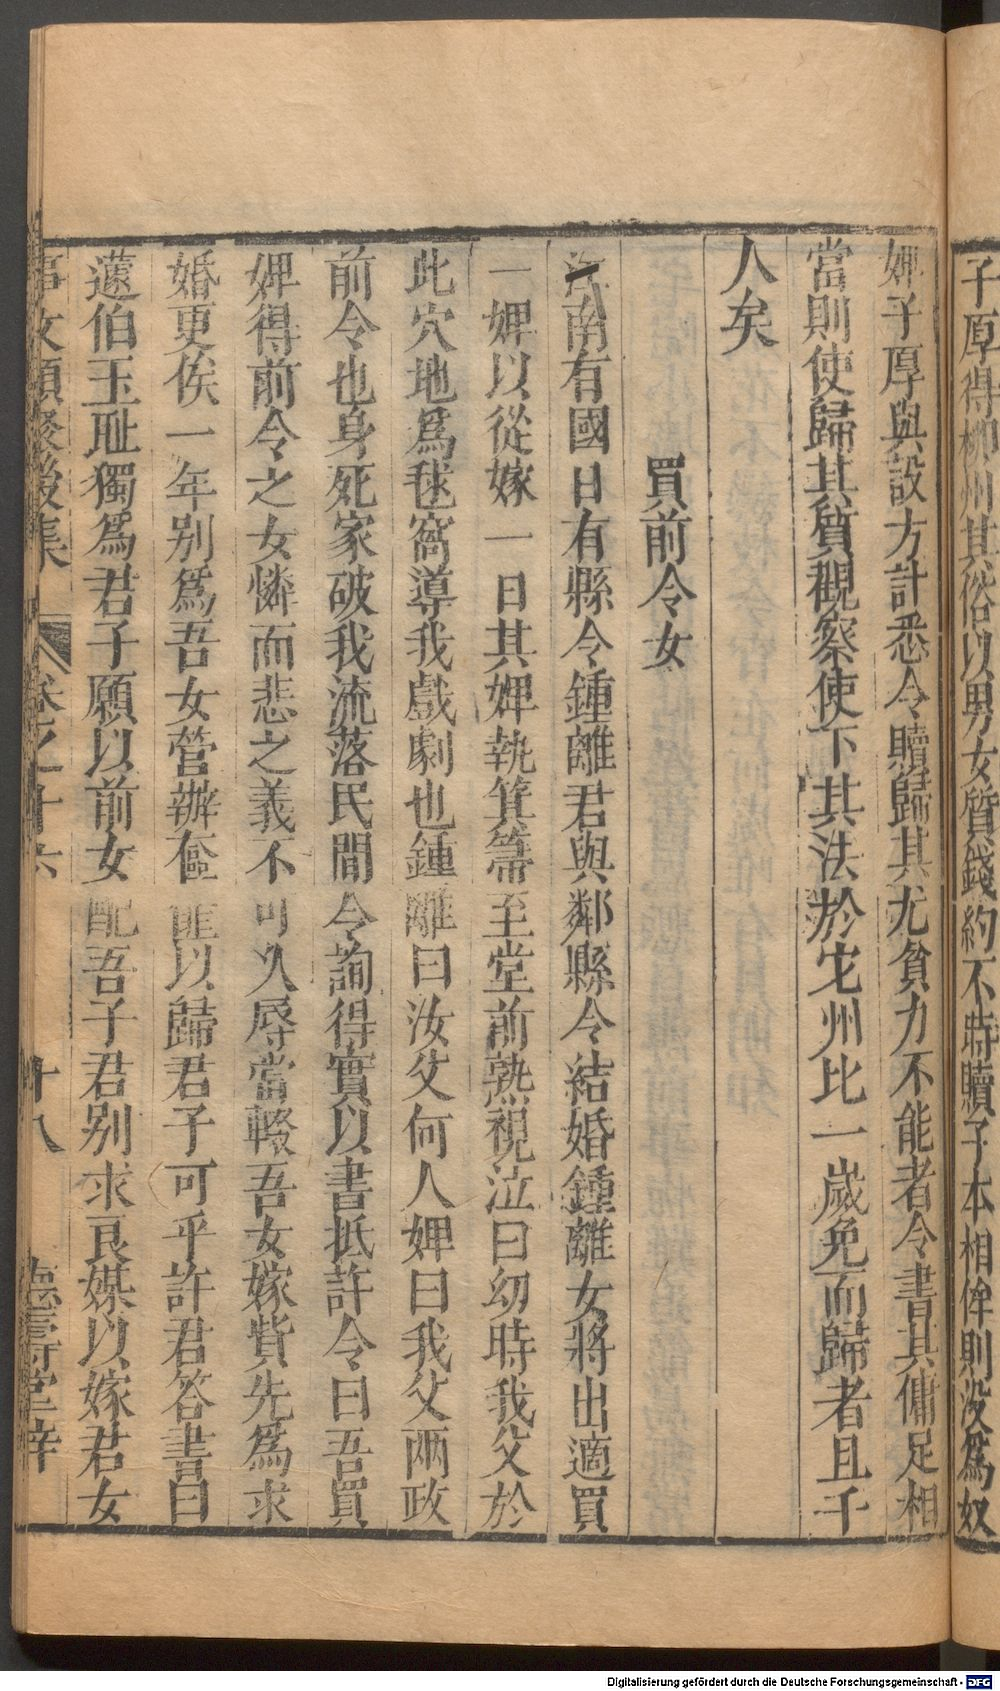 子厚得柳州其俗以男女質錢約不時贖子本相侔則没為奴
婢子厚與設方計悉令贖歸其尤貧力不能者令書其傭足相
當則使歸其質觀察使下其法於它州比一歲免而歸者且千
人矣
買前令女
南有國日有縣令鍾離君與鄰縣令結婚鍾離女將出適買
一婢以從嫁一日其婢執箕箒至堂前熟視泣曰幼時我父於
此穴地為毬窩導我戲劇也鍾離曰汝父何人婢曰我父兩政
前令也身死家破我流落民間令詢得實以書抵許令曰吾買
婢得前令之女憐而悲之義不可久辱當輟吾女嫁貲先為求
婚更俟一年别為吾女營辦奩匪以歸君子可乎許君答書曰
蘧伯玉耻獨為君子願以前女配吾子君别求良媒以嫁君女
事文類聚後集 卷之十六 十八 德壽堂梓
Digitalisierung gefördert durch die Deutsche Forschungsgemeinschaft - DFG